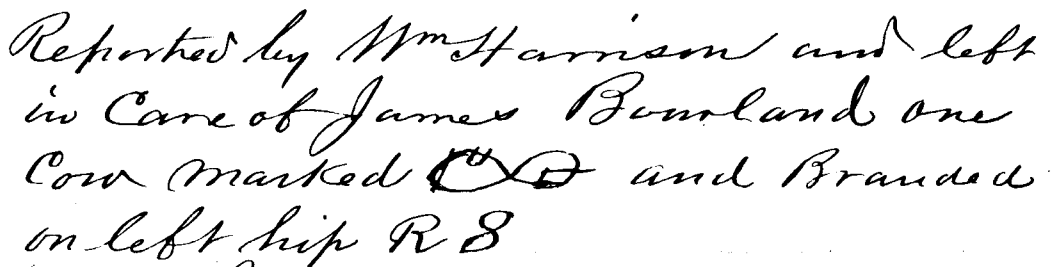 Reported by Wm Harrison and left
in Care of James Bourland one
Cow marked and Branded
on left hip R S